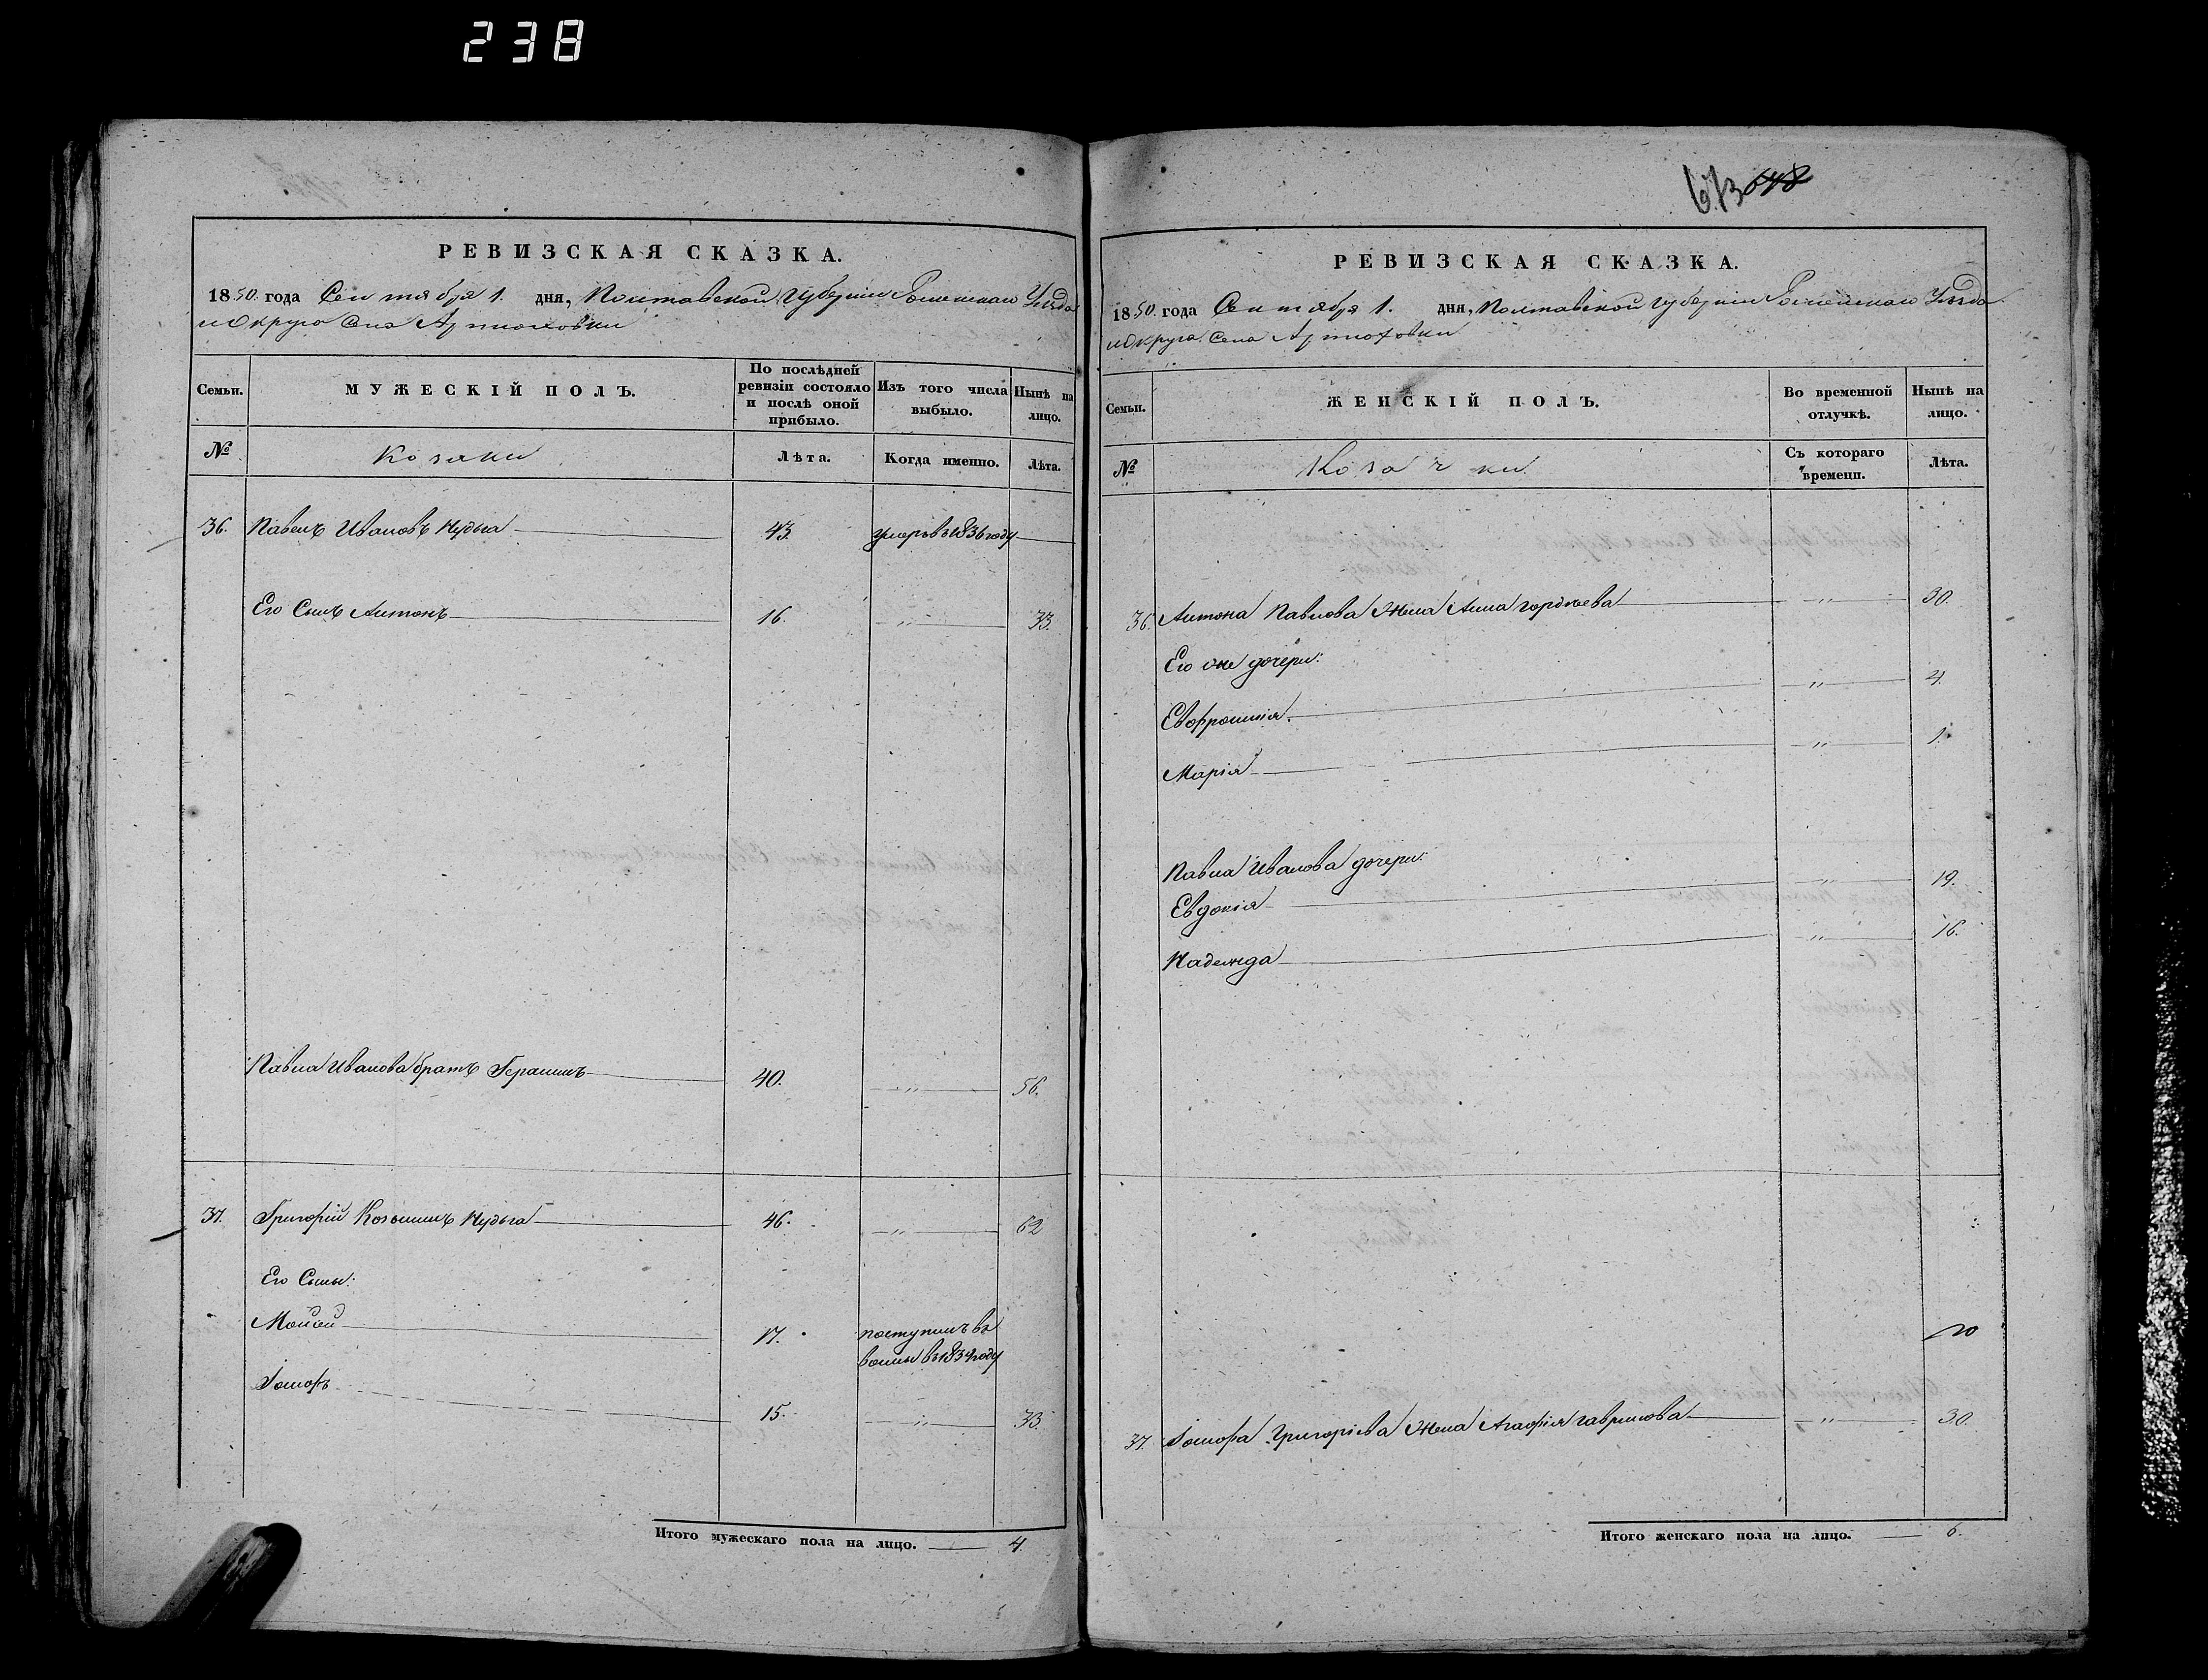 238
РЕВИЗСКАЯ СКАЗКА.
1850. года Сентября 1. дня, Полтавской Губернiи Роменскаго Уѣзда
и Округа Села Артюховки
Семьи.
МУЖЕСКІЙ ПОЛЪ.
По послѣдней ревизіи состояло и послѣ оной прибыло.
Изъ того числа выбыло.
Нынѣ на лицо.
№
Козаки
Лѣта.
Когда именно.
Лѣта.
36. Павелъ Ивановъ Нудьга 43. умеръ въ 1836 году
Его Сынъ Антонъ 16. „ 33.
Павла Иванова братъ Герасимъ 40. „ 56.
37. Григорій Козьминъ Нудьга 46. „ 62
Его Сыны:
Моисей 17. поступилъ въ
воины въ 1834 году
15. „ 33.
Итого мужескаго пола на лицо. 4.
673 648
РЕВИЗСКАЯ СКАЗКА.
1850. года Сентября 1. дня, Полтавской Губерніи Роменскаго Уѣзда
и Округа Села Артюховки
Семьи.
ЖЕНСКІЙ ПОЛЪ.
Во временной отлучкѣ.
Нынѣ на лицо.
№
Козачки
Съ котораго времени.
Лѣта.
36. Антона Павлова Жена Анна Гордѣева „ 30.
Его же дочери:
Евфросинія „ 4.
Марія „ 1.
Павла Иванова дочери:
Евдокія „ 19.
Надежда „ 16.
37. Григоріева Жена Агафія Гаврилова „ 30.
Итого женскаго пола на лицо. 6.